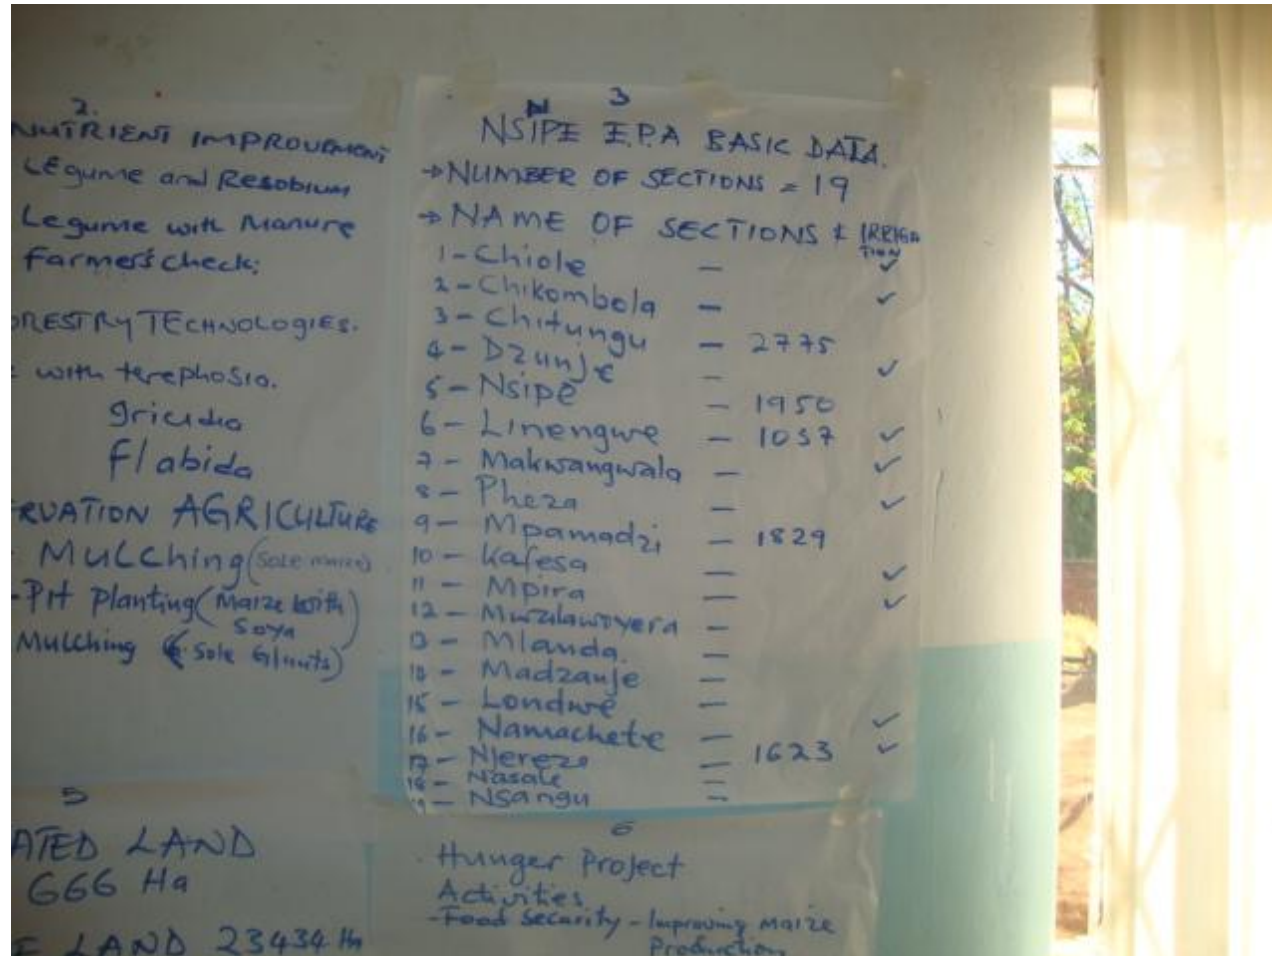 2.
NUTRIENT IMPROVEMENT
Legume and Resobium
Legume with Manure
Farmer's check:
ORESTRY TECHNOLOGIES.
with terephosia.
gricidia
Flabida
RVATION AGRICULTURE
Mulching (Sole maize)
-Pit Planting (Maize with
Soya)
Mulching (Sole G/nuts)
3
N
NSIPE E.P.A BASIC DATA.
→NUMBER OF SECTIONS = 19
→NAME OF SECTIONS & IRRIGA
TION
1-Chiole - ✓
2-Chikombola - ✓
3-Chitungu - 2775
4-Dzunje - ✓
5-Nsipe - 1950
6-Linengwe - 1037 ✓
7-Makwangwala - ✓
8-Pheza - ✓
9-Mpamadzi - 1829
10-Kafesa - ✓
11-Mpira - ✓
12-Mwalawoyera -
13-Mlanda. -
14-Madzanje -
15-Londwe -
16-Namachete - ✓
17-Njereza - 1623 ✓
18-Nasale -
19-Nsangu -
5
ATED LAND
666 Ha
E LAND 23434 Ha
6
Hunger Project
Activities
-Food Security - Improving Maize
Production